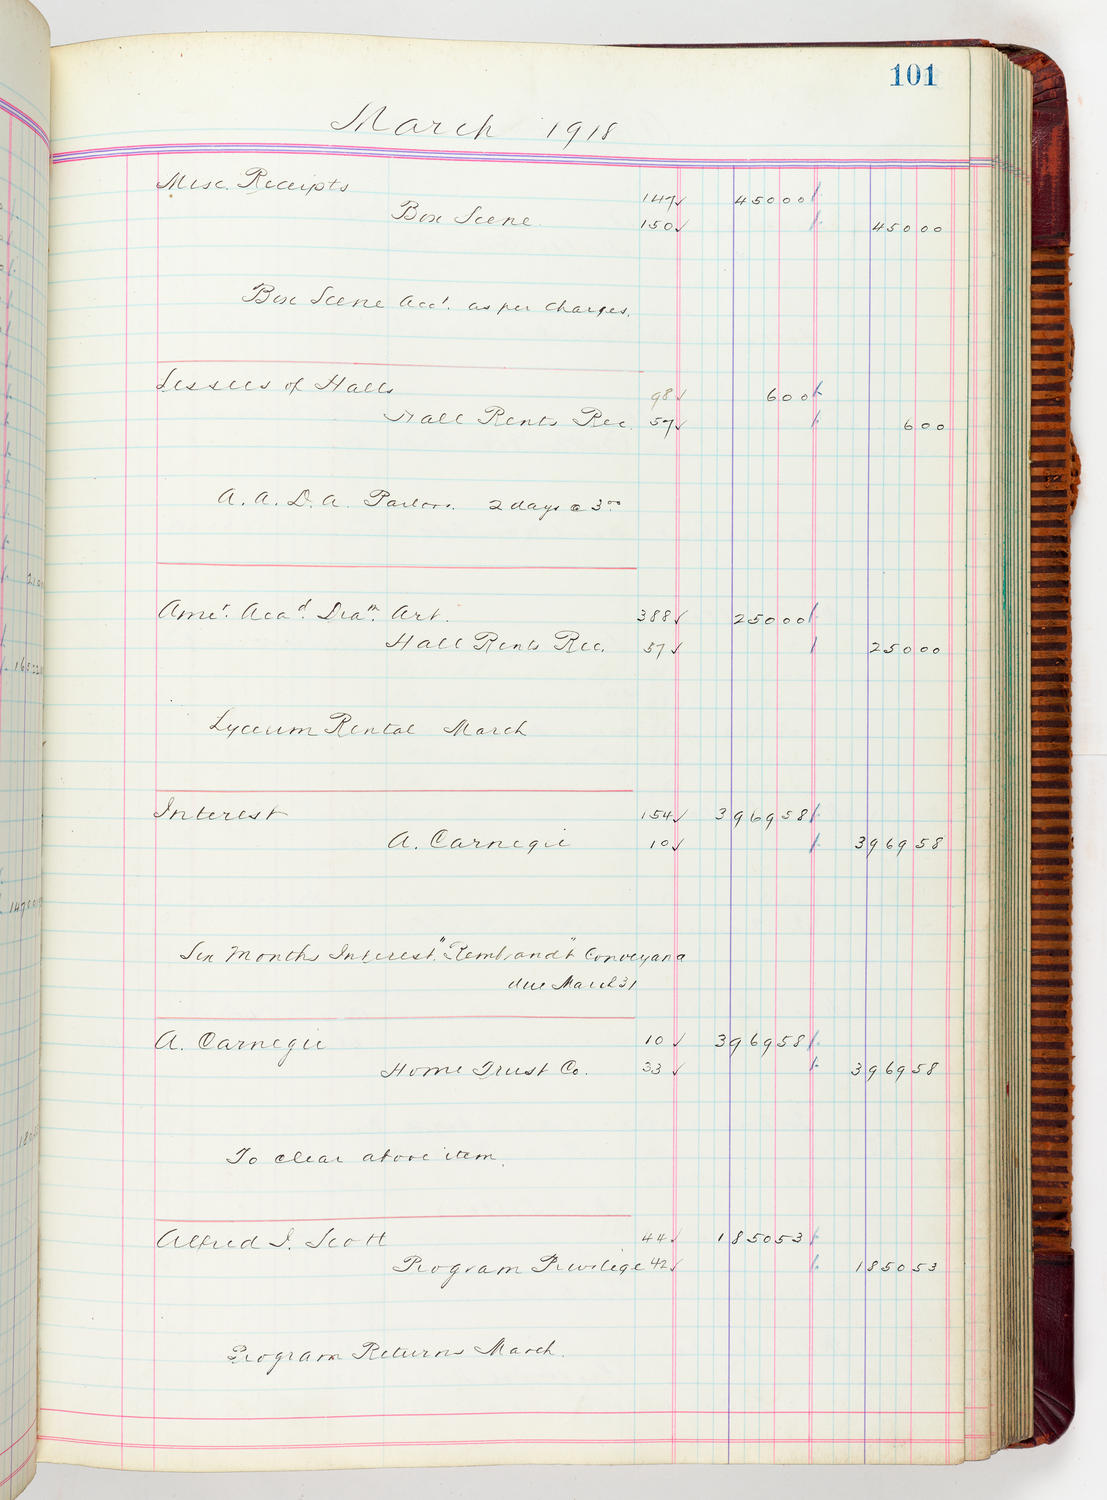 101
March 1918
Misc. Receipts 147 ✓ 450 00
Box Scene 150 ✓ 450 00
Box Scene Acct. as per charges.
Lessees of Halls 98 ✓ 6 00
Hall Rents Rec. 57 ✓ 6 00
A. A. D. A. Parlors. 2 days @ 3 00
Amer. Acad. Dram. Art. 388 ✓ 250 00
Hall Rents Rec. 57 ✓ 250 00
Lyceum Rental March
Interest 154 ✓ 3969 58
A. Carnegie 10 ✓ 3969 58
Six Months Interest "Rembrandt" Conveyana
due March 31
A. Carnegie 10 ✓ 3969 58
Home Trust Co. 33 ✓ 3969 58
To clear above item.
Alfred I. Scott 44 ✓ 1850 53
Program Privilige 42 ✓ 1850 53
Program Returns March.